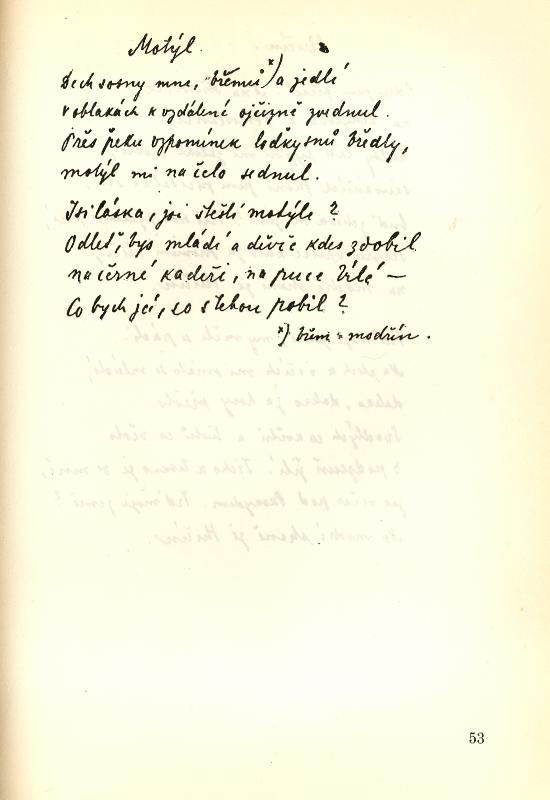 Motýl.
Dech sosny mne, břěmů *) a jedlí
v oblakách k vzdálené ojčizně zvednul.
Přes řeku vzpomínek loďky snů vedly,
motýl mi na čelo sednul.
Jsi láska, jsi štěstí motýle?
Odleť, bys mládí a děvče kdes zdobil
na černé kadeři, na ruce bílé —
Co bych já, co s tebou robil?
*) břěm = modřín.
53